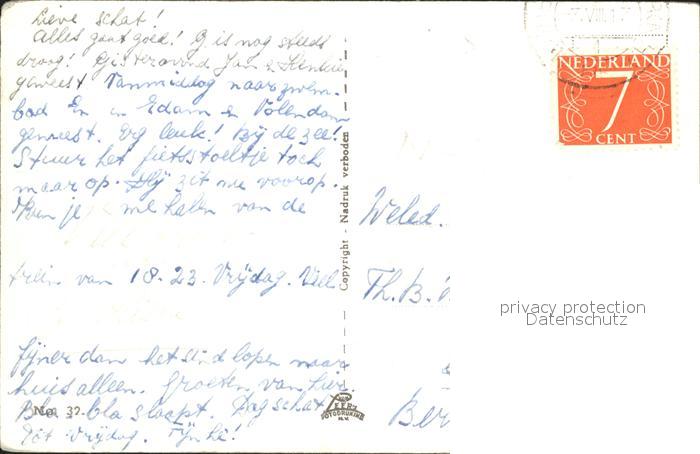 Lieve schat!
Alles gaat goed! G. is nog steeds
droog! Gisteravond Jan &
geweest Vanmiddag naar zwem-
bad En in Edam & Volendam
geweest. Erg leuk! Bij de zee!
Stuur het fietsstoeltje toch
maar op. Hij zit nu voorop.
Kom je me halen van de
trein van 18-23. Vrijdag. Veel
fijner dan het eind lopen naar
huis alleen. Groeten van hier.
Bla - bla slaapt. Dag schat
Tot vrijdag. Fijn hè!
No. 32.
Copyright - Nadruk verboden
FOTODRUKKERIJ
N.V.
NEDERLAND
7
CENT
Weled.
Th. B.
Ber
privacy protection
Datenschutz